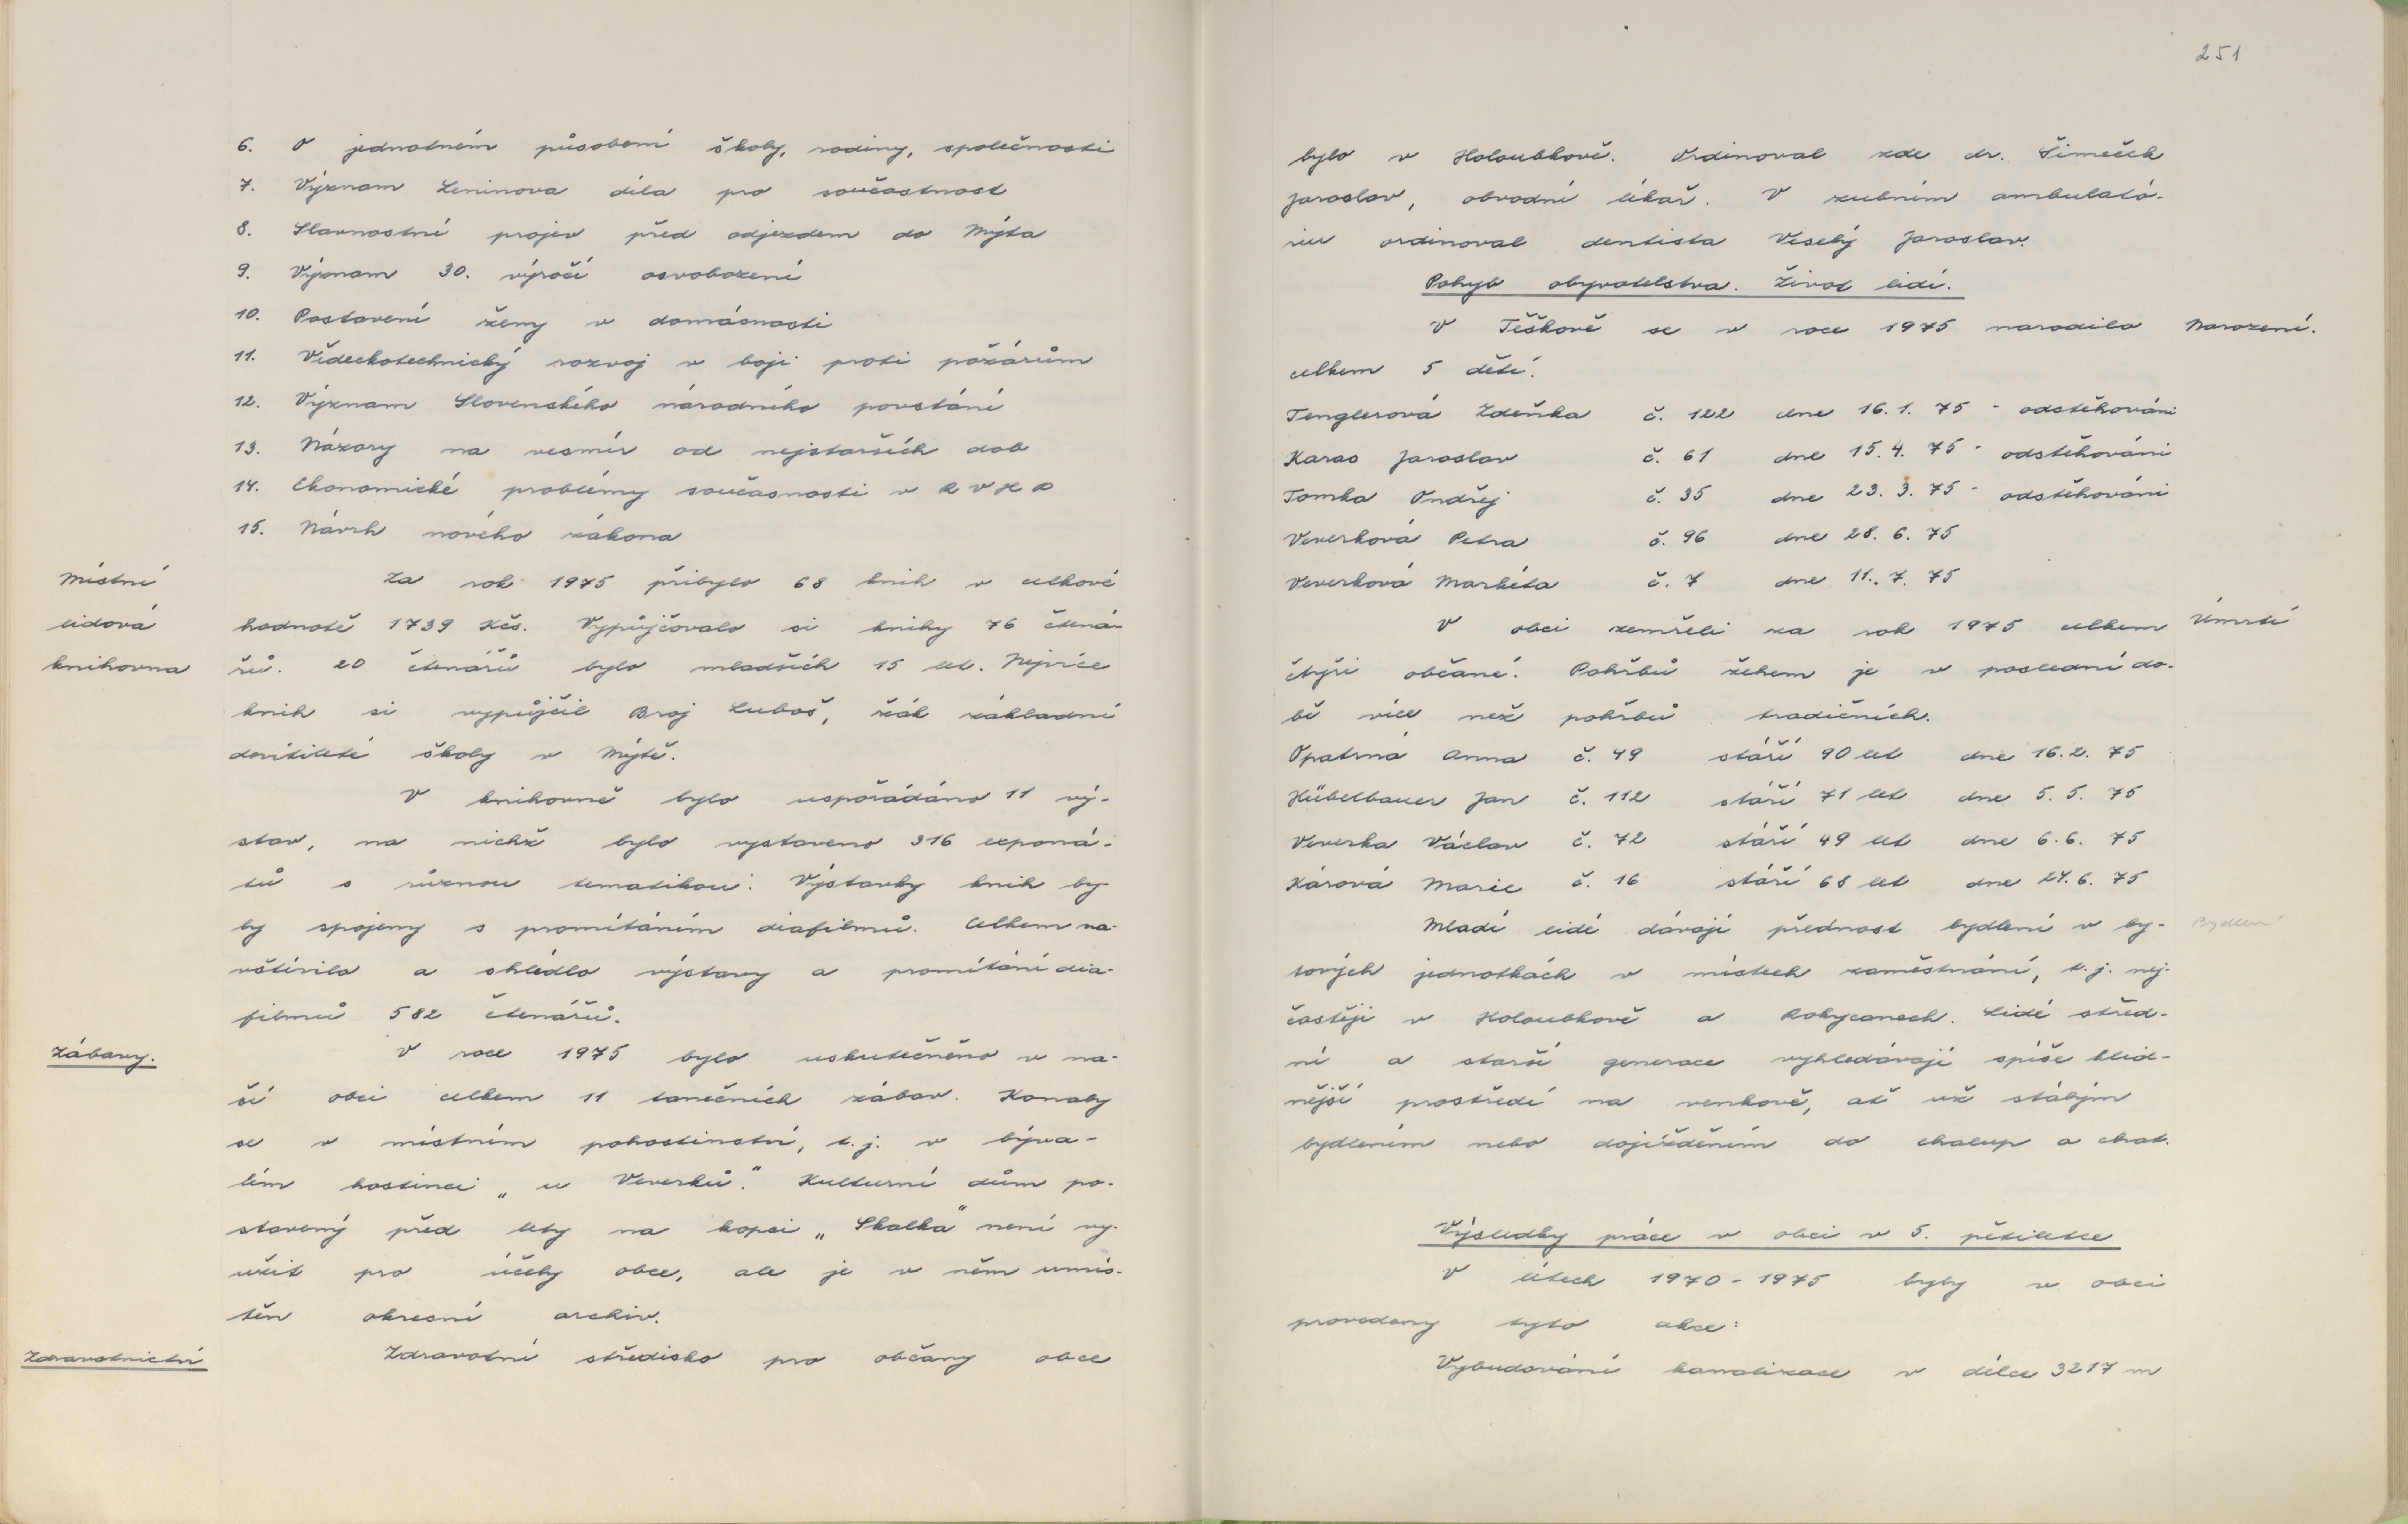 6. O jednotném působení školy, rodiny, společnosti
7. Význam Leninova díla pro součastnost
8. Slavnostní projev před odjezdem do Mýta
9. Význam 30. výročí osvobození
10. Postavení ženy v domácnosti
11. Vědeckotechnický rozvoj v boji proti požárům
12. Význam Slovenského národního povstání
13. Názory na vesmír od nejstarších dob
14. Ekonomické problémy současnosti v RVHP
15. Návrh nového zákona
Místní
lidová
knihovna
Za rok 1975 přibylo 68 knih v celkové
hodnotě 1739 Kčs. Vypůjčovalo si knihy 76 čtená-
řů. 20 čtenářů bylo mladších 15 let. Nejvíce
knih si vypůjčil Broj Luboš, žák základní
devítileté školy v Mýtě.
V knihovně bylo uspořádáno 11 vý-
stav, na nichž bylo vystaveno 316 exponá-
tů s různou tematikou. Výstavky knih by-
ly spojeny s promítáním diafilmů. Celkem na-
vštívilo a shlédlo výstavy a promítání dia-
filmů 582 čtenářů.
Zábavy.
V roce 1975 bylo uskutečněno v na-
ší obci celkem 11 tanečních zábav. Konaly
se v místním pohostinství, t.j. v býva-
lém hostinci „u Veverků". Kulturní dům po-
stavený před lety na kopci „Skalka" není vy-
užit pro účely obce, ale je v něm umís-
těn okresní archiv.
Zdravotnictví
Zdravotní středisko pro občany obce
251
bylo v Holoubkově. Ordinoval zde dr. Šimeček
Jaroslav, obvodní lékař. V zubním ambulató-
riu ordinoval dentista Veselý Jaroslav.
Pohyb obyvatelstva. Život lidí.
V Těškově se v roce 1975 narodilo
Narození.
celkem 5 dětí.
Tenglerová Zdeňka č. 122 dne 16.1. 75 - odstěhováni
Karas Jaroslav č. 61 dne 15.4. 75 - odstěhováni
Tomka Ondřej č. 35 dne 23.3.75 - odstěhováni
Veverková Petra č. 96 dne 28. 6. 75
Veverková Markéta č. 7 dne 11. 7. 75
V obci zemřeli za rok 1975 celkem
Úmrtí
čtyři občané. Pohřbů žehem je v poslední do-
bě více než pohřbů tradičních.
Opatrná Anna č. 49 stáří 90 let dne 16.2. 75
Hübelbauer Jan č. 112 stáří 71 let dne 5. 5. 75
Veverka Václav č. 72 stáří 49 let dne 6.6. 75
Kárová Marie č. 16 stáří 68 let dne 24.6. 75
Mladí lidé dávají přednost bydlení v by-
Bydlení
tových jednotkách v místech zaměstnání, t.j. nej-
častěji v Holoubkově a Rokycanech. Lidé střed-
ní a starší generace vyhledávají spíše klid-
nější prostředí na venkově, ať už stálým
bydlením nebo dojížděním do chalup a chat.
Výsledky práce v obci v 5. pětiletce
V létech 1970-1975 byly v obci
provedeny tyto akce:
Vybudování kanalizace v délce 3217 m